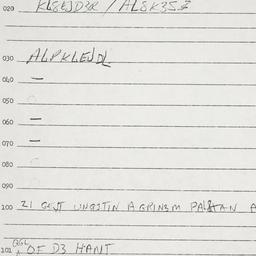 020 KLSEJD3R / AL8K35
030 ALPKLEJDL
040 —
050
060 —
070 —
080
090
100 21 GEST UNGSTIN AGRINSM PALSTAN A
101 OGL OF D3 HANT